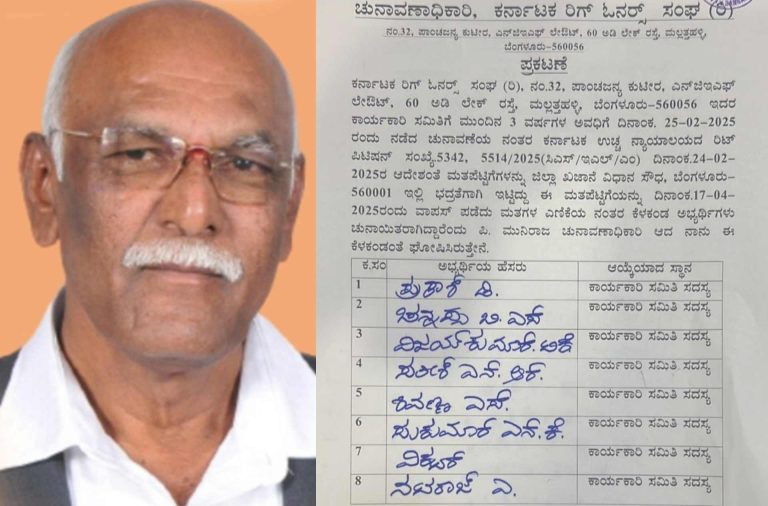 ಚುನಾವಣಾಧಿಕಾರಿ, ಕರ್ನಾಟಕ ರಿಗ್ ಓನರ್ಸ್ ಸಂಘ (ರಿ)
ನಂ.32, ಪಾಂಚಜನ್ಯ ಕುಟೀರ, ಎನ್‌ಜಿಇಎಫ್ ಲೇಔಟ್, 60 ಅಡಿ ಲೇಕ್ ರಸ್ತೆ, ಮಲ್ಲತ್ತಹಳ್ಳಿ,
ಬೆಂಗಳೂರು-560056
ಪ್ರಕಟಣೆ
ಕರ್ನಾಟಕ ರಿಗ್ ಓನರ್ಸ್ ಸಂಘ (ರಿ), ನಂ.32, ಪಾಂಚಜನ್ಯ ಕುಟೀರ, ಎನ್‌ಜಿಇಎಫ್
ಲೇಔಟ್, 60 ಅಡಿ ಲೇಕ್ ರಸ್ತೆ, ಮಲ್ಲತ್ತಹಳ್ಳಿ, ಬೆಂಗಳೂರು-560056 ಇದರ
ಕಾರ್ಯಕಾರಿ ಸಮಿತಿಗೆ ಮುಂದಿನ 3 ವರ್ಷಗಳ ಅವಧಿಗೆ ದಿನಾಂಕ. 25-02-2025
ರಂದು ನಡೆದ ಚುನಾವಣೆಯ ನಂತರ ಕರ್ನಾಟಕ ಉಚ್ಚ ನ್ಯಾಯಾಲಯದ ರಿಟ್
ಪಿಟಿಷನ್ ಸಂಖ್ಯೆ.5342, 5514/2025(ಸಿಎಸ್/ಇಎಲ್/ಎಂ) ದಿನಾಂಕ.24-02-
2025ರ ಆದೇಶಂತೆ ಮತಪೆಟ್ಟಿಗೆಗಳನ್ನು ಜಿಲ್ಲಾ ಖಜಾನೆ ವಿಧಾನ ಸೌಧ, ಬೆಂಗಳೂರು-
560001 ಇಲ್ಲಿ ಭದ್ರತೆಗಾಗಿ ಇಟ್ಟಿದ್ದು ಈ ಮತಪೆಟ್ಟಿಗೆಯನ್ನು ದಿನಾಂಕ.17-04-
2025ರಂದು ವಾಪಸ್ ಪಡೆದು ಮತಗಳ ಎಣಿಕೆಯ ನಂತರ ಕೆಳಕಂಡ ಅಭ್ಯರ್ಥಿಗಳು
ಚುನಾಯಿತರಾಗಿದ್ದಾರೆಂದು ಪಿ. ಮುನಿರಾಜ ಚುನಾವಣಾಧಿಕಾರಿ ಆದ ನಾನು ಈ
ಕೆಳಕಂಡಂತೆ ಘೋಷಿಸಿರುತ್ತೇನೆ.
ಕ.ಸಂ ಅಭ್ಯರ್ಥಿಯ ಹೆಸರು ಆಯ್ಕೆಯಾದ ಸ್ಥಾನ
1 ಪ್ರಕಾಶ್ ಡಿ. ಕಾರ್ಯಕಾರಿ ಸಮಿತಿ ಸದಸ್ಯ
2 ಚಿನ್ನಪ್ಪ ಬಿ.ಎಸ್ ಕಾರ್ಯಕಾರಿ ಸಮಿತಿ ಸದಸ್ಯ
3 ವಿಜಯ್ ಕುಮಾರ್. ಕಾರ್ಯಕಾರಿ ಸಮಿತಿ ಸದಸ್ಯ
4 ಸತೀಶ್ ಎನ್. ಆರ್. ಕಾರ್ಯಕಾರಿ ಸಮಿತಿ ಸದಸ್ಯ
5 ಶಿವಣ್ಣ ಎಸ್. ಕಾರ್ಯಕಾರಿ ಸಮಿತಿ ಸದಸ್ಯ
6 ಸುಕುಮಾರ್ ಎನ್.ಕೆ. ಕಾರ್ಯಕಾರಿ ಸಮಿತಿ ಸದಸ್ಯ
7 ಕಾರ್ಯಕಾರಿ ಸಮಿತಿ ಸದಸ್ಯ
8 ನಟರಾಜ್ ಎ. ಕಾರ್ಯಕಾರಿ ಸಮಿತಿ ಸದಸ್ಯ